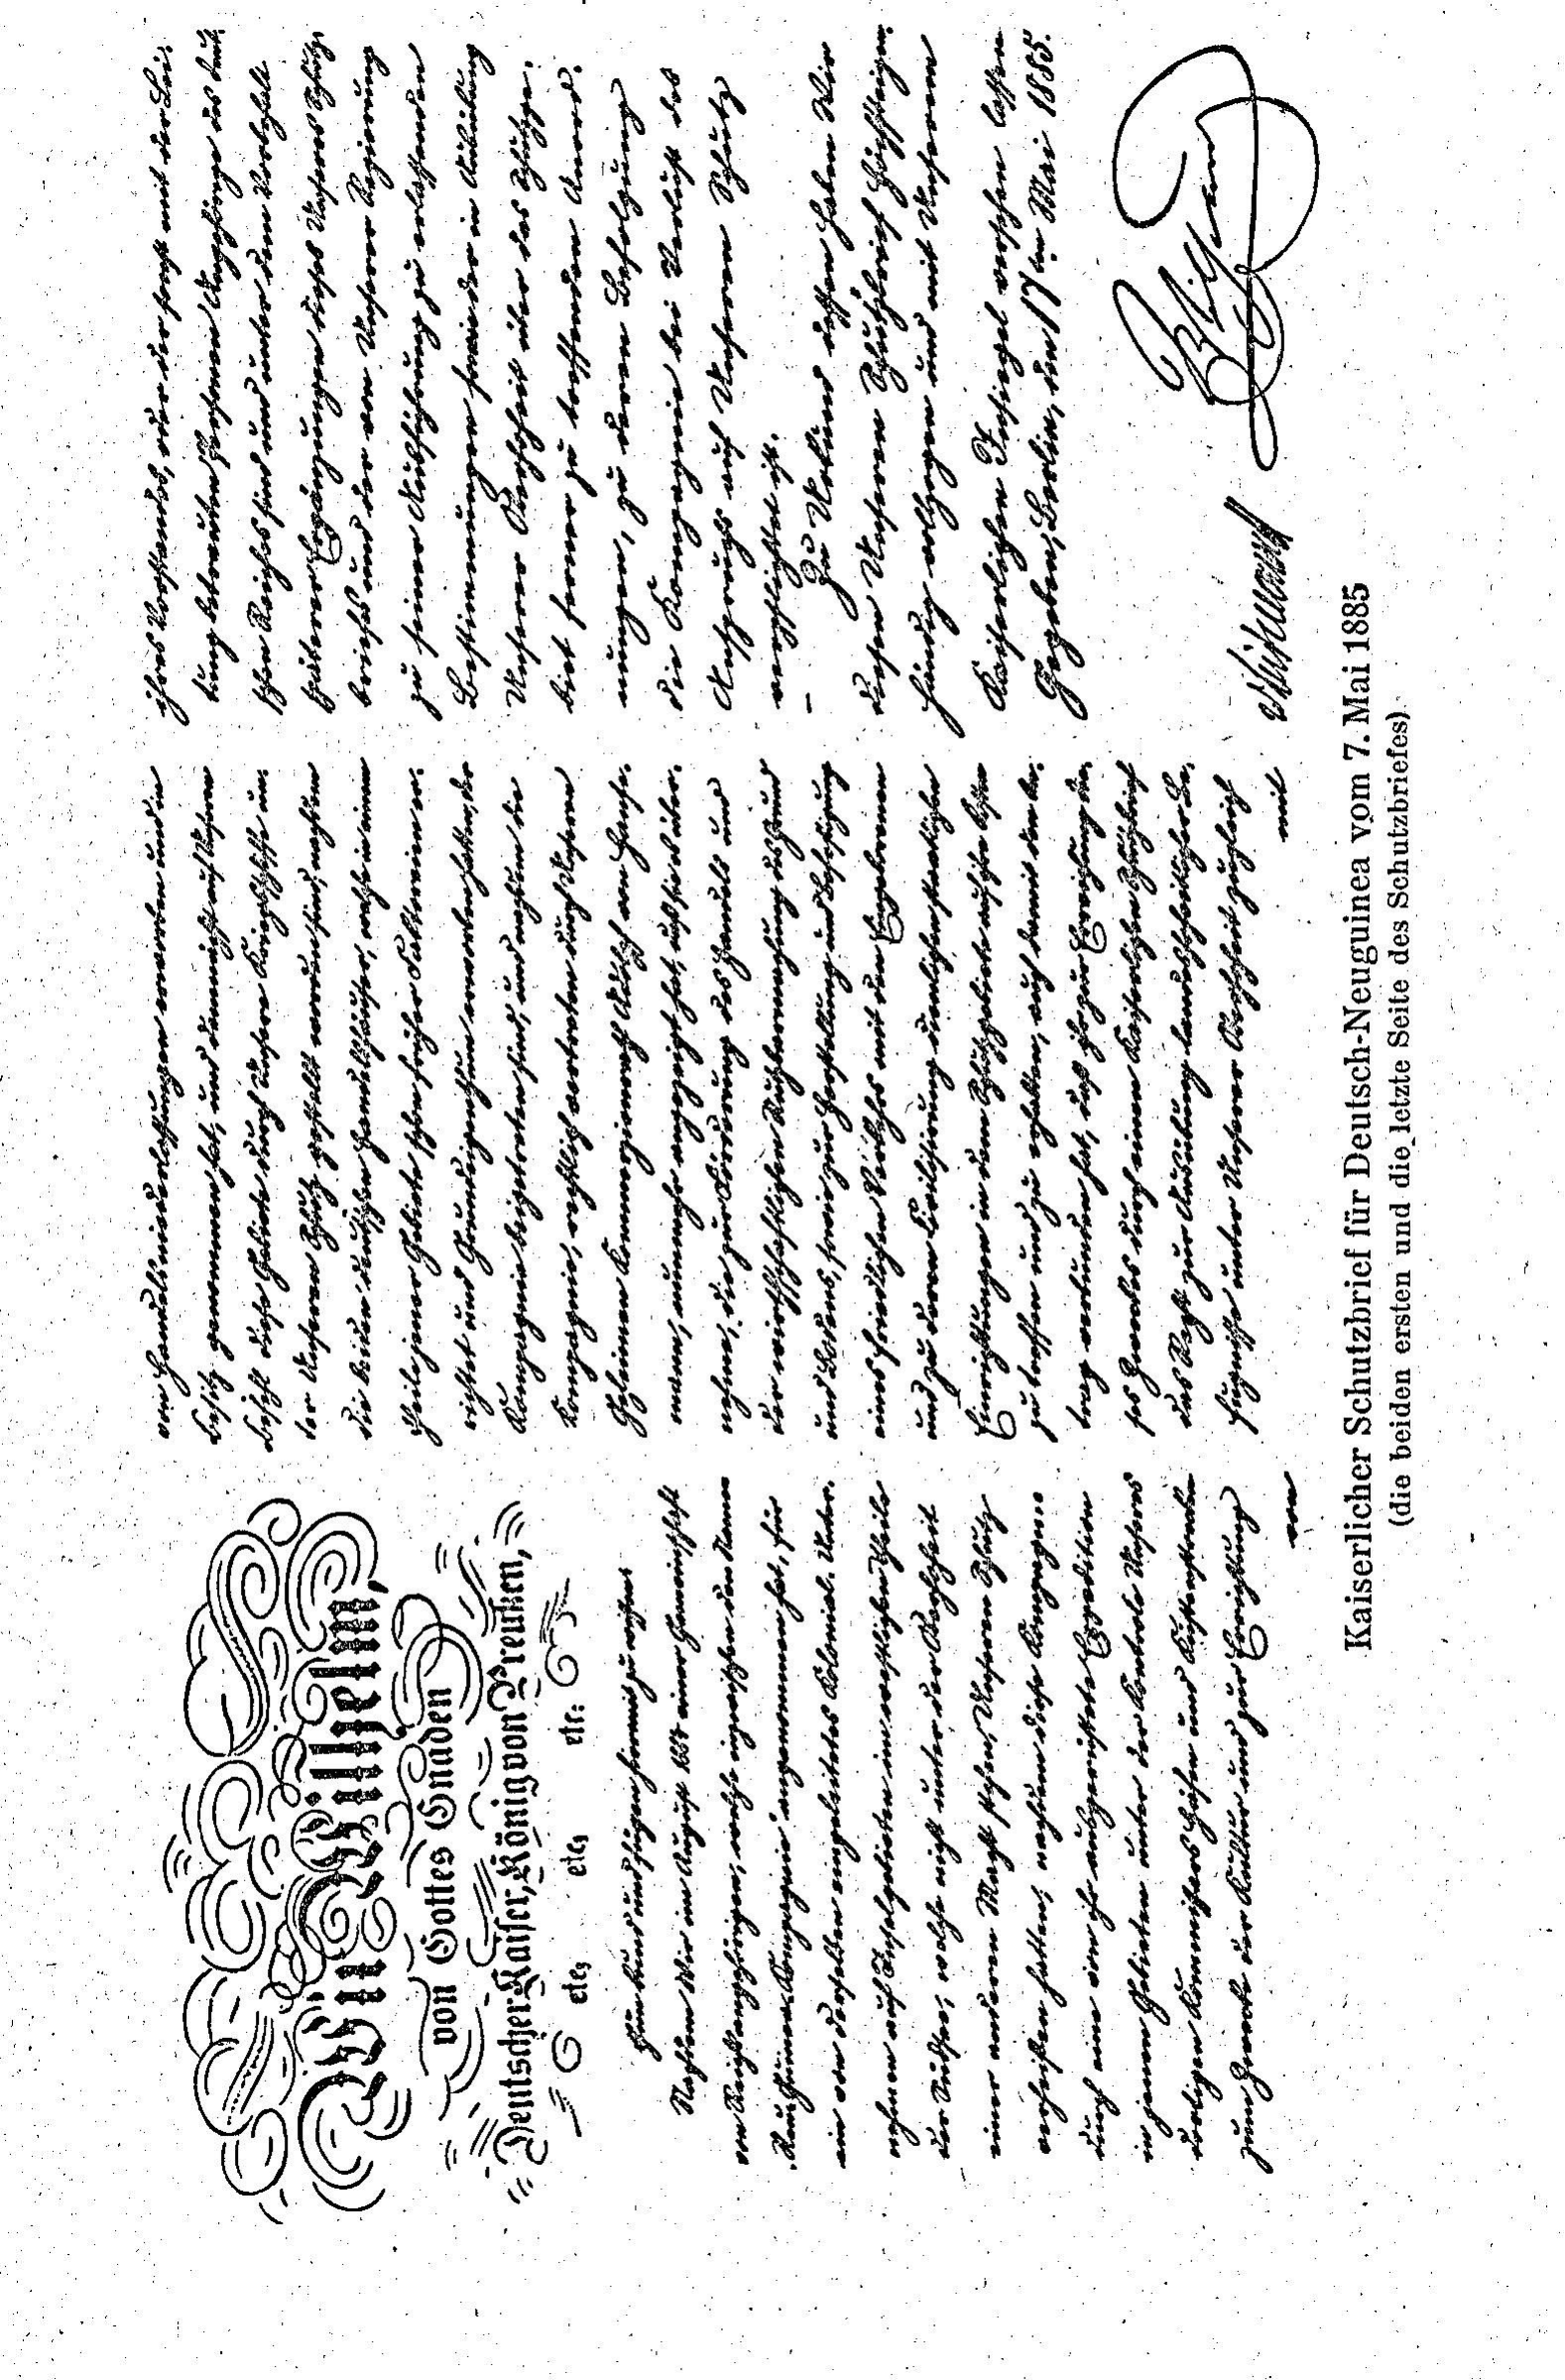 Wir Wilhelm,
von Gottes Gnaden
Deutscher Kaiser, König von Preußen,
etc, etc, etc:
thun kund und fügen hiermit zu wissen:
Nachdem Wir im August 1884 einer Gemeinschaft
von Reichsangehörigen, welche inzwischen den Namen
„Neu Guinea-Kompagnie" angenommen hat, für
ein von derselben eingeleitetes Kolonial-Unter-
nehmen auf Inselgebieten im westlichen Theile
der Südsee, welche nicht unter der Oberhoheit
einer anderen Macht stehen, Unseren Schutz
verheißen hatten, nachdem diese Kompagnie
durch eine von ihr ausgerüstete Expedition
in jenen Gebieten unter der Kontrole Unseres
dortigen Kommissars Häfen und Küstenstrecken
zum Zwecke der Kultur und zur Errichtung
von
von Handelsniederlassungen erworben und in
Besitz genommen hat, und demnächst auf Unseren
Befehl diese Gebiete durch Unsere Kriegsschiffe un-
ter Unseren Schutz gestellt worden sind, nachdem
die beiden deutschen Handelshäuser, welche in einem
Theile jener Gebiete schon früher Faktoreien er-
richtet und Grundeigenthum erworben hatten, der
Kompagnie beigetreten sind, und nachdem die
Kompagnie, rechtlich vertreten durch Unseren
Geheimen Kommerzienrath Adolph von Hanse-
mann, nunmehr angezeigt hat, daß sie es über-
nehme, die zur Förderung des Handels und
der wirthschaftlichen Nutzbarmachung des Grund
und Bodens, sowie zur Herstellung und Befestigung
eines friedlichen Verkehrs mit den Eingeborenen
und zu deren Civilisirung dienlichen staatlichen
Einrichtungen in dem Schutzgebiete auf ihre Kosten
zu treffen und zu erhalten, auch damit den An-
trag verbunden hat, daß ihr zur Erreichung die-
ses Zweckes durch einen Kaiserlichen Schutzbrief
das Recht zur Ausübung landeshoheitlicher Be-
fugnisse unter Unserer Oberhoheit zugleich
mit
ihres Vorstandes, oder der sonst mit der Lei-
tung betrauten Personen Angehörige des Deut-
schen Reiches sind und unter dem Vorbehalt
späterer Ergänzungen dieses Unseres Schutz-
briefes und der von Unserer Regierung
zu seiner Ausführung zu erlassenden
Bestimmungen sowie der in Ausübung
Unserer Oberhoheit über das Schutzge-
biet ferner zu treffenden Anord-
nungen, zu deren Befolgung
die Kompagnie bei Verlust des
Anspruchs auf Unseren Schutz
verpflichtet ist.
Zu Urkund dessen haben Wir
diesen Unseren Schutzbrief Höchsteigen-
händig vollzogen und mit Unserem
Kaiserlichen Insiegel versehen lassen
Gegeben, Berlin, den 17ten Mai 1885.
Wilhelm
Kaiserlicher Schutzbrief für Deutsch-Neuguinea vom 7. Mai 1885
(die beiden ersten und die letzte Seite des Schutzbriefes)